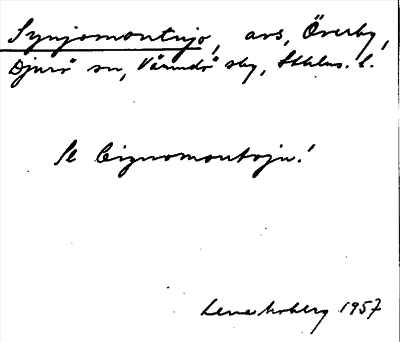 Synjomontojo, avs, Överby,
Djurö sn, Värmdö sby, Sthlms. l.
Se Cignomontojn!
Lena Moberg 1957